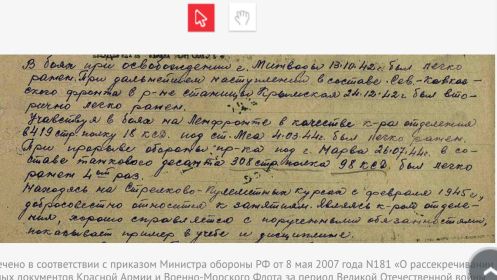 В боях при освобождении г. Минводы 13.10.42г. был легко
ранен. При дальнейшем наступлении в составе Сев-Кавказ-
ского фронта в р-не станицы Крымская 24.12.42г был вто-
рично легко ранен.
Участвуя в боях на Ленфронте в качестве к-ра отделения
в 419 стр. полку 18 КСД. под ст. Мга 4.03.44г. был легко ранен.
При прорыве обороны пр-ка под г. Нарва 26.07.44г. в со-
ставе танкового десанта 308 стр. полка 98 КСД. был легко
ранен 4ый раз.
Находясь на Стрелково-Пулеметных Курсах с февраля 1945г,
добросовестно относится к занятиям. Являясь к-ром отделе-
ния, хорошо справляется с порученными обязанностями,
показывает пример в учебе и дисциплине.
ечено в соответствии с приказом Министра обороны РФ от 8 мая 2007 года N181 «О рассекречивании
ных документов Красной Армии и Военно-Морского Флота за период Великой Отечественной войны